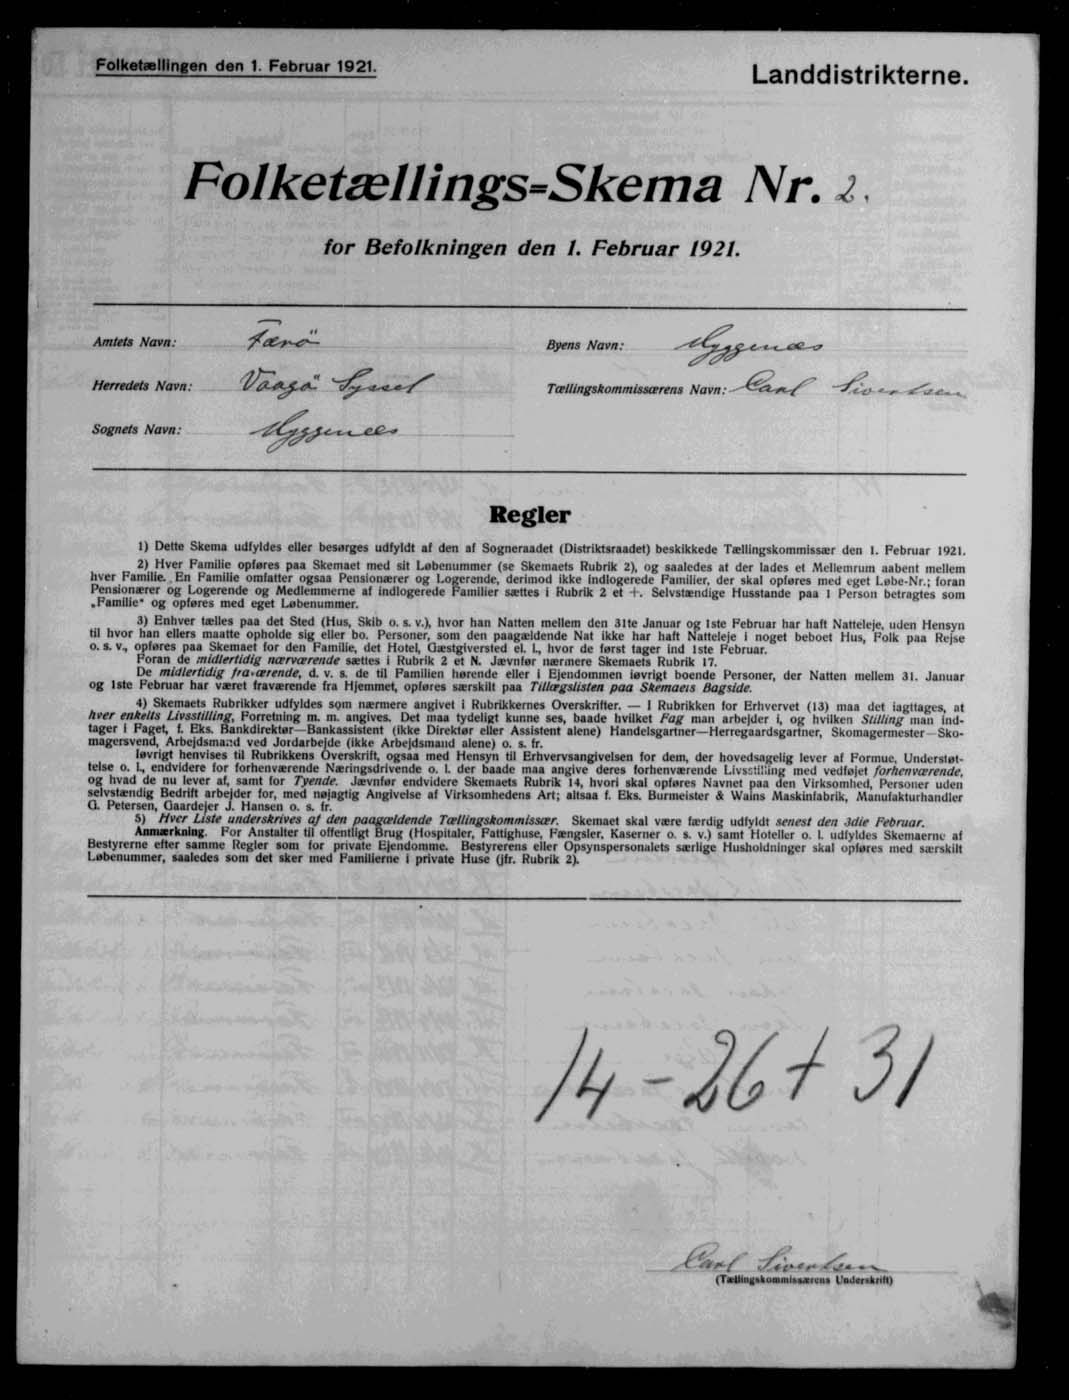 Folketællingen den 1. Februar 1921.
Landdistrikterne.
Folketællings=Skema Nr. 2.
for Befolkningen den 1. Februar 1921.
Amtets Navn: Færö
Byens Navn: Myggenæs
Herredets Navn: Vaagö Syssel
Tællingskommissærens Navn: Carl Sivertsen
Sognets Navn: Myggenæs
Regler
1) Dette Skema udfyldes eller besørges udfyldt af den af Sogneraadet (Distriktsraadet) beskikkede Tællingskommissær den 1. Februar 1921.
2) Hver Familie opføres paa Skemaet med sit Løbenummer (se Skemaets Rubrik 2), og saaledes at der lades et Mellemrum aabent mellem
hver Familie. En Familie omfatter ogsaa Pensionærer og Logerende, derimod ikke indlogerede Familier, der skal opføres med eget Løbe-Nr.; foran
Pensionærer og Logerende og Medlemmerne af indlogerede Familier sættes i Rubrik 2 et +. Selvstændige Husstande paa 1 Person betragtes som
„Familie“ og opføres med eget Løbenummer.
3) Enhver tælles paa det Sted (Hus, Skib o. s. v.), hvor han Natten mellem den 31te Januar og 1ste Februar har haft Natteleje, uden Hensyn
til hvor han ellers maatte opholde sig eller bo. Personer, som den paagældende Nat ikke har haft Natteleje i noget beboet Hus, Folk paa Rejse
o. s. v., opføres paa Skemaet for den Familie, det Hotel, Gæstgiversted el. l., hvor de først tager ind 1ste Februar.
Foran de midlertidig nærværende sættes i Rubrik 2 et N. Jævnfør nærmere Skemaets Rubrik 17.
De midlertidig fraværende, d. v. s. de til Familien hørende eller i Ejendommen iøvrigt boende Personer, der Natten mellem 31. Januar
og 1ste Februar har været fraværende fra Hjemmet, opføres særskilt paa Tillægslisten paa Skemaets Bagside.
4) Skemaets Rubrikker udfyldes som nærmere angivet i Rubrikkernes Overskrifter. — I Rubrikken for Erhvervet (13) maa det iagttages, at
hver enkelts Livsstilling, Forretning m. m. angives. Det maa tydeligt kunne ses, baade hvilket Fag man arbejder i, og hvilken Stilling man ind-
tager i Faget, f. Eks. Bankdirektør—Bankassistent (ikke Direktør eller Assistent alene) Handelsgartner—Herregaardsgartner, Skomagermester—Sko-
magersvend, Arbejdsmand ved Jordarbejde (ikke Arbejdsmand alene) o. s. fr.
Iøvrigt henvises til Rubrikkens Overskrift, ogsaa med Hensyn til Erhvervsangivelsen for dem, der hovedsagelig lever af Formue, Understøt-
telse o. l., endvidere for forhenværende Næringsdrivende o. l. der baade maa angive deres forhenværende Livsstilling med vedføjet forhenværende,
og hvad de nu lever af, samt for Tyende. Jævnfør endvidere Skemaets Rubrik 14, hvori skal opføres Navnet paa den Virksomhed, Personer uden
selvstændig Bedrift arbejder for, med nøjagtig Angivelse af Virksomhedens Art; altsaa f. Eks. Burmeister & Wains Maskinfabrik, Manufakturhandler
G. Petersen, Gaardejer J. Hansen o. s. fr.
5) Hver Liste underskrives af den paagældende Tællingskommissær. Skemaet skal være færdig udfyldt senest den 3die Februar.
Anmærkning. For Anstalter til offentligt Brug (Hospitaler, Fattighuse, Fængsler, Kaserner o. s. v.) samt Hoteller o. l. udfyldes Skemaerne af
Bestyrerne efter samme Regler som for private Ejendomme. Bestyrerens eller Opsynspersonalets særlige Husholdninger skal opføres med særskilt
Løbenummer, saaledes som det sker med Familierne i private Huse (jfr. Rubrik 2).
14 - 26 + 31
Carl Sivertsen
(Tællingskommissærens Underskrift)